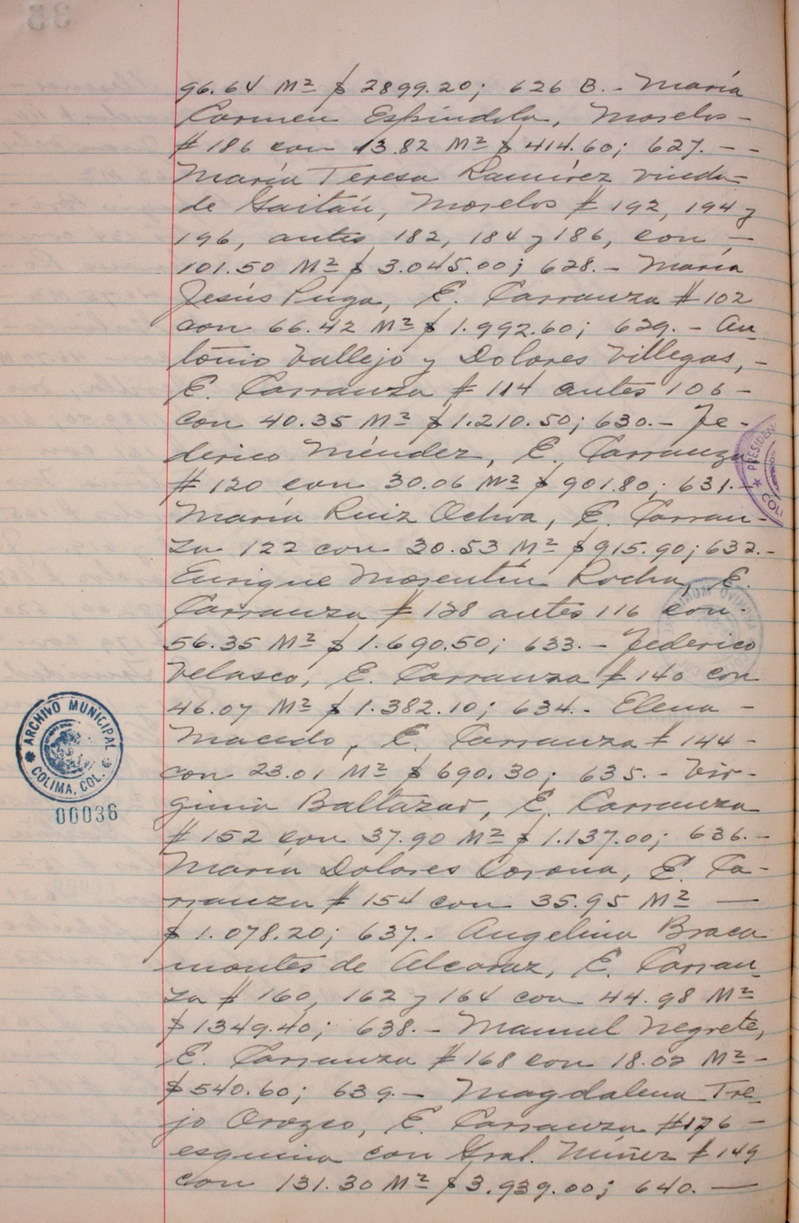 96.64 M² $ 2899.20; 626 B.- María
Carmen Espíndola, Morelos -
# 186 con 13.82 M² $ 414.60; 627.- -
María Teresa Ramírez viuda -
de Gaitán, Morelos # 192, 194 y
196, antes 182, 184 y 186, con -
101.50 M² $ 3.045.00; 628.- María
Jesús Puga, E. Carranza # 102
con 66.42 M² $ 1.992.60; 629.- An-
tonio Vallejo y Dolores Villegas, -
E. Carranza # 114 antes 106 -
con 40.35 M² $ 1.210.50; 630.- Fe-
derico Méndez, E. Carranza
# 120 con 30.06 M² $ 901.80; 631.-
María Ruiz Ochoa, E. Carran-
za 122 con 30.53 M² $ 915.90; 632.-
Enrique Morentín Rocha, E.
Carranza # 128 antes 116 con -
56.35 M² $ 1.690.50; 633.- Federico
Velasco, E. Carranza # 140 con
46.07 M² $ 1.382.10; 634.- Elena -
Macedo, E. Carranza # 144 -
con 23.01 M² $ 690.30; 635.- Vir-
ginia Baltazar, E. Carranza
# 152 con 37.90 M² $ 1.137.00; 636.-
María Dolores Corona, E. Ca-
rranza # 154 con 35.95 M² -
$ 1.078.20; 637.- Angelina Braca
montes de Alcaraz, E. Carran-
za # 160, 162 y 164 con 44.98 M²
$ 1349.40; 638.- Manuel Negrete,
E. Carranza # 168 con 18.02 M² -
$ 540.60; 639.- Magdalena Tre-
jo Orozco, E. Carranza #176 -
esquina con Gral. Núñez # 149
con 131.30 M² $ 3.939.00; 640. -
ARCHIVO MUNICIPAL
COLIMA, COL.
00036